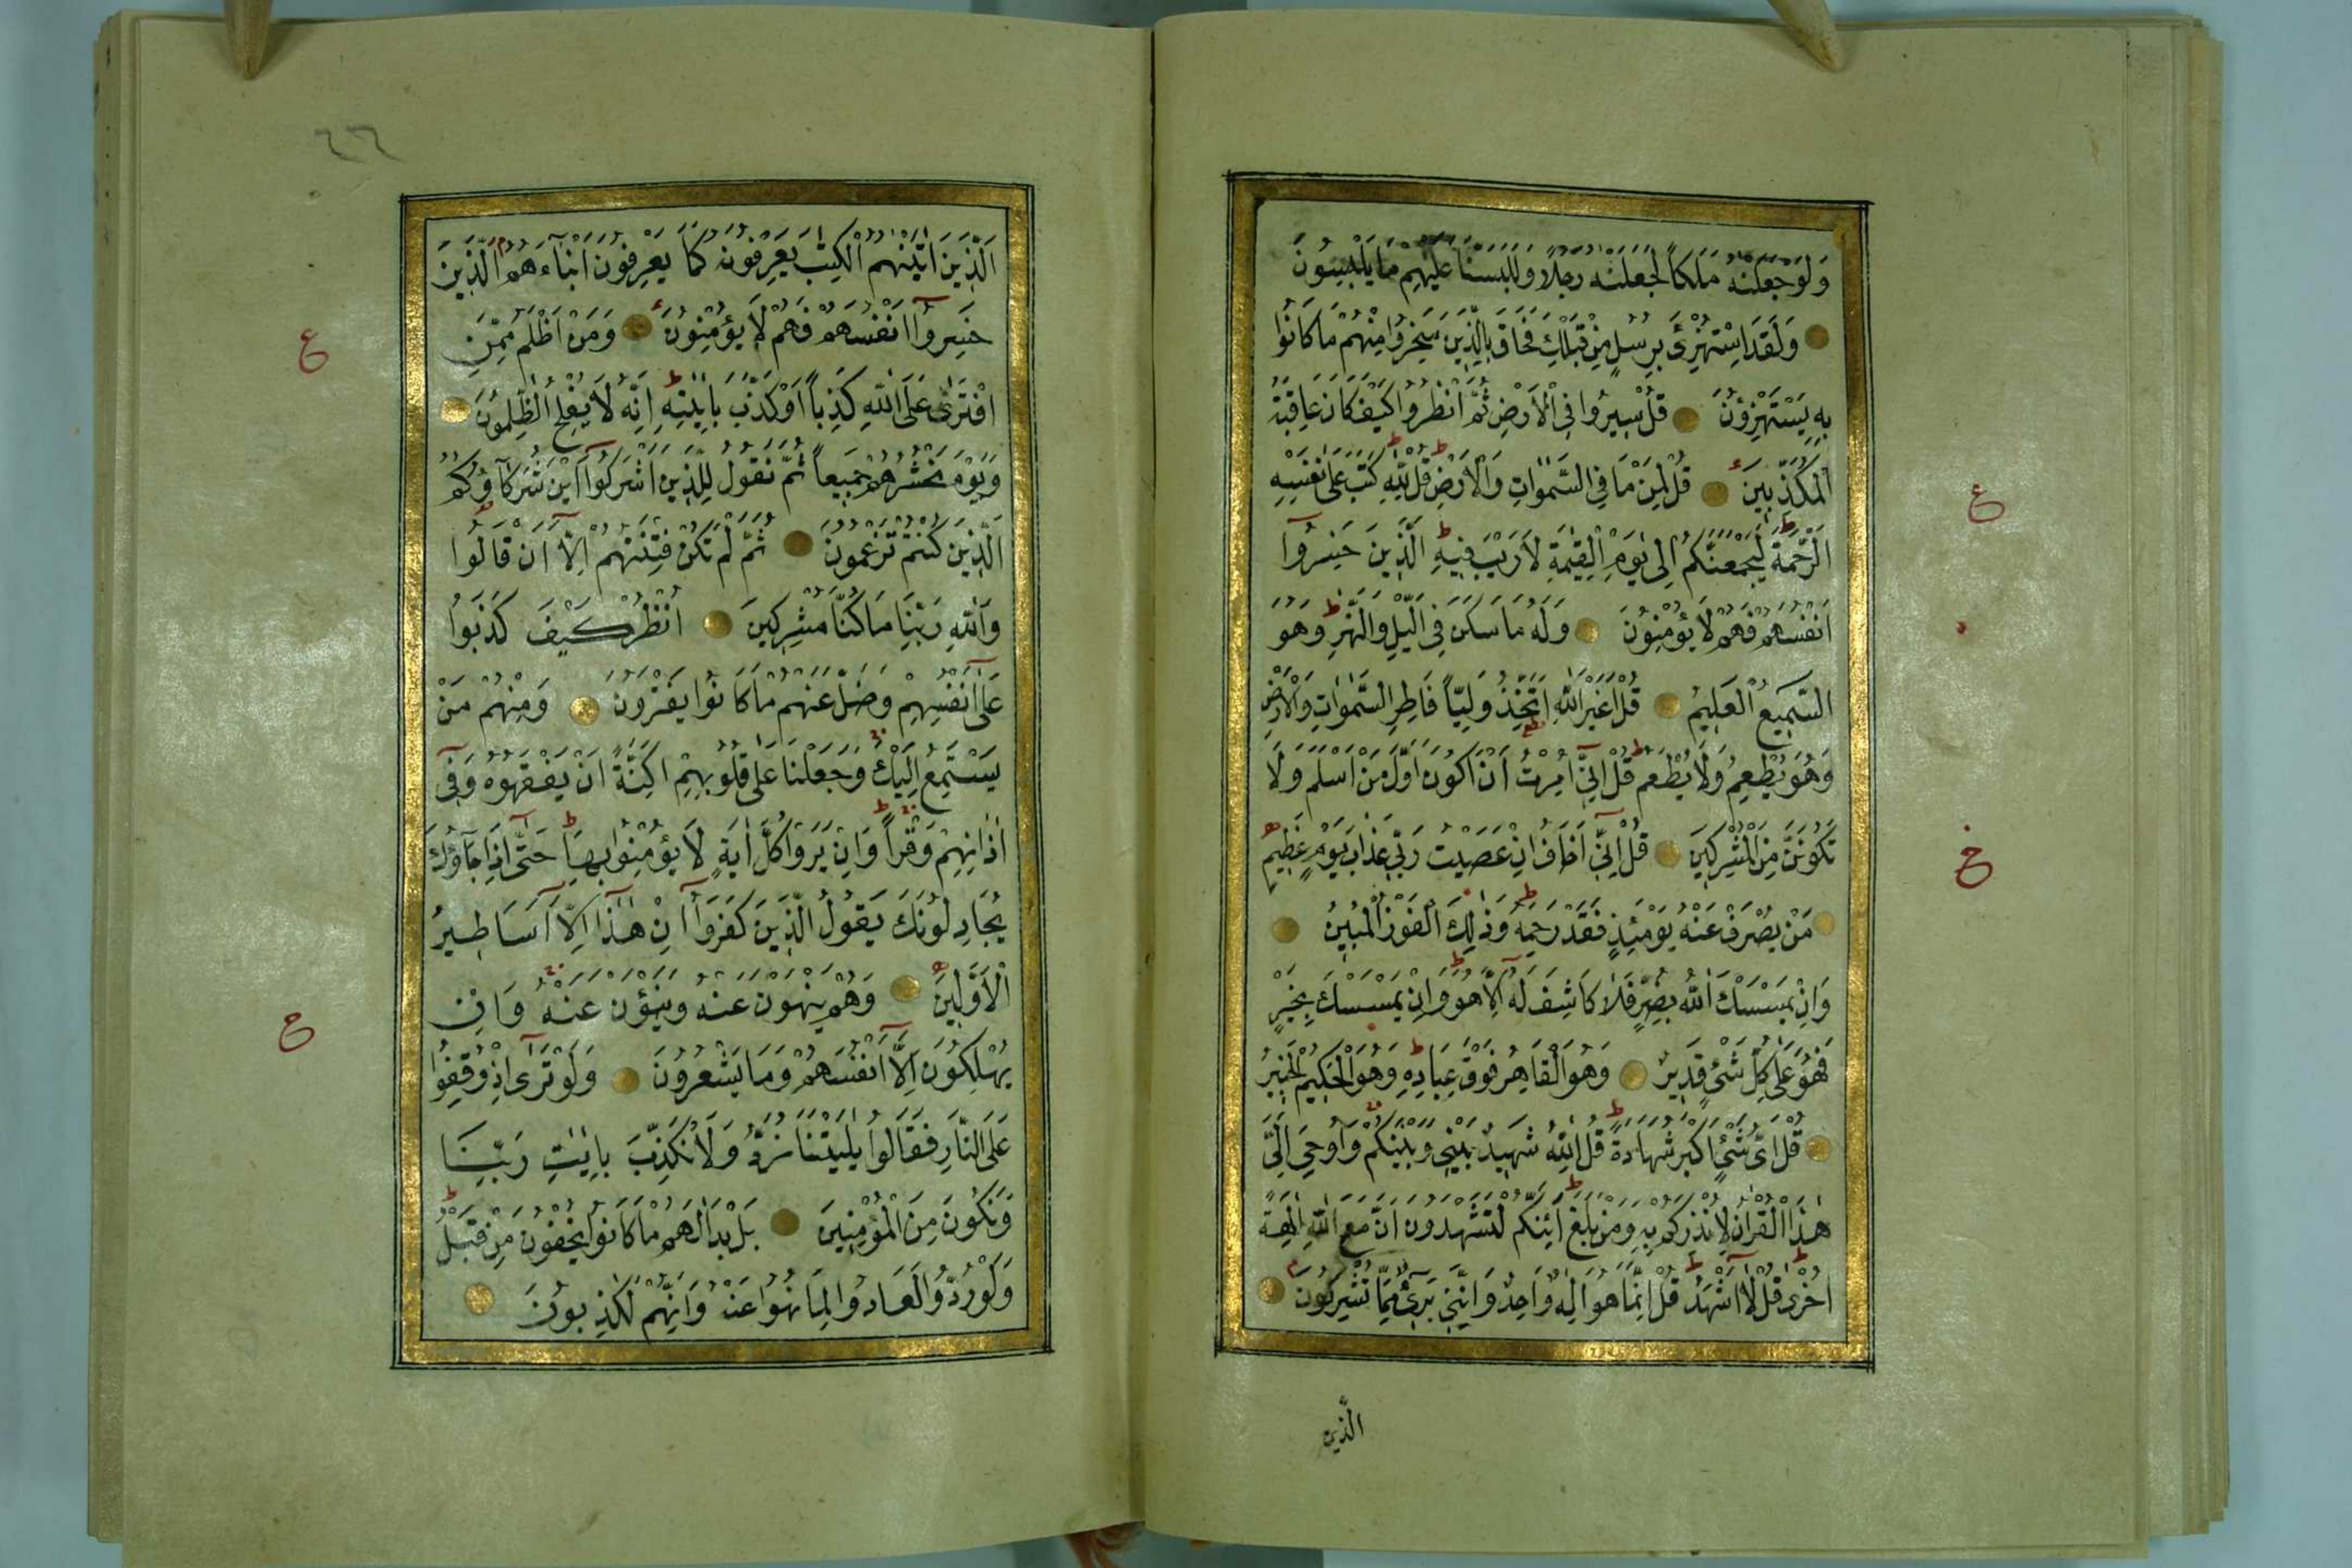 وَلَوْ جَعَلْنٰهُ مَلَكاً لَجَعَلْنٰهُ رَجُلاً وَلَلَبَسْنَا عَلَيْهِمْ مَا يَلْبِسُونَ
وَلَقَدِ اسْتُهْزِئَ بِرُسُلٍ مِنْ قَبْلِكَ فَحَاقَ بِالَّذِينَ سَخِرُوا مِنْهُمْ مَا كَانُوا
بِهِ يَسْتَهْزِؤُنَ قُلْ سِيرُوا فِي الْأَرْضِ ثُمَّ انْظُرُوا كَيْفَ كَانَ عَاقِبَةُ
الْمُكَذِّبِينَ قُلْ لِمَنْ مَا فِي السَّمٰوَاتِ وَالْأَرْضِ قُلْ لِلّٰهِ كَتَبَ عَلٰى نَفْسِهِ
الرَّحْمَةَ لَيَجْمَعَنَّكُمْ اِلٰى يَوْمِ الْقِيٰمَةِ لَا رَيْبَ فِيهِ الَّذِينَ خَسِرُوا
اَنْفُسَهُمْ فَهُمْ لَا يُؤْمِنُونَ وَلَهُ مَا سَكَنَ فِي الَّيْلِ وَالنَّهَرِ وَهُوَ
السَّمِيعُ الْعَلِيمُ قُلْ اَغَيْرَ اللّٰهِ اَتَّخِذُ وَلِيّاً فَاطِرِ السَّمٰوَاتِ وَالْأَرْضِ
وَهُوَ يُطْعِمُ وَلَا يُطْعَمُ قُلْ اِنِّي اُمِرْتُ اَنْ اَكُونَ اَوَّلَ مَنْ اَسْلَمَ وَلَا
تَكُونَنَّ مِنَ الْمُشْرِكِينَ قُلْ اِنِّي اَخَافُ اِنْ عَصَيْتُ رَبِّي عَذَابَ يَوْمٍ عَظِيمٍ
مَنْ يُصْرَفْ عَنْهُ يَوْمَئِذٍ فَقَدْ رَحِمَهُ وَذٰلِكَ الْفَوْزُ الْمُبِينُ
وَاِنْ يَمْسَسْكَ اللّٰهُ بِضُرٍّ فَلَا كَاشِفَ لَهُ اِلَّا هُوَ وَاِنْ يَمْسَسْكَ بِخَيْرٍ
فَهُوَ عَلٰى كُلِّ شَيْءٍ قَدِيرٌ وَهُوَ الْقَاهِرُ فَوْقَ عِبَادِهِ وَهُوَ الْحَكِيمُ الْخَبِيرُ
قُلْ اَيُّ شَيْءٍ اَكْبَرُ شَهَادَةً قُلِ اللّٰهُ شَهِيدٌ بَيْنِي وَبَيْنَكُمْ وَاُوحِيَ اِلَيَّ
هٰذَا الْقُرْاٰنُ لِاُنْذِرَكُمْ بِهِ وَمَنْ بَلَغَ اَئِنَّكُمْ لَتَشْهَدُونَ اَنَّ مَعَ اللّٰهِ اٰلِهَةً
اُخْرٰى قُلْ لَا اَشْهَدُ قُلْ اِنَّمَا هُوَ اِلٰهٌ وَاحِدٌ وَاِنَّنِي بَرِيءٌ مِمَّا تُشْرِكُونَ
الَّذِينَ
ع
خ
٦٦
اَلَّذِينَ اٰتَيْنٰهُمُ الْكِتٰبَ يَعْرِفُونَهُ كَمَا يَعْرِفُونَ اَبْنَاءَهُمْ اَلَّذِينَ
خَسِرُوا اَنْفُسَهُمْ فَهُمْ لَا يُؤْمِنُونَ وَمَنْ اَظْلَمُ مِمَّنِ
افْتَرٰى عَلَى اللّٰهِ كَذِباً اَوْ كَذَّبَ بِاٰيٰتِهِ اِنَّهُ لَا يُفْلِحُ الظّٰلِمُونَ
وَيَوْمَ نَحْشُرُهُمْ جَمِيعاً ثُمَّ نَقُولُ لِلَّذِينَ اَشْرَكُوا اَيْنَ شُرَكَاؤُكُمُ
الَّذِينَ كُنْتُمْ تَزْعُمُونَ ثُمَّ لَمْ تَكُنْ فِتْنَتُهُمْ اِلَّا اَنْ قَالُوا
وَاللّٰهِ رَبِّنَا مَا كُنَّا مُشْرِكِينَ اُنْظُرْ كَيْفَ كَذَبُوا
عَلٰى اَنْفُسِهِمْ وَضَلَّ عَنْهُمْ مَا كَانُوا يَفْتَرُونَ وَمِنْهُمْ مَنْ
يَسْتَمِعُ اِلَيْكَ وَجَعَلْنَا عَلٰى قُلُوبِهِمْ اَكِنَّةً اَنْ يَفْقَهُوهُ وَفِي
اٰذَانِهِمْ وَقْراً وَاِنْ يَرَوْا كُلَّ اٰيَةٍ لَا يُؤْمِنُوا بِهَا حَتّٰى اِذَا جَاؤُكَ
يُجَادِلُونَكَ يَقُولُ الَّذِينَ كَفَرُوا اِنْ هٰذَا اِلَّا اَسَاطِيرُ
الْاَوَّلِينَ وَهُمْ يَنْهَوْنَ عَنْهُ وَيَنْؤَنَ عَنْهُ وَاِنْ
يُهْلِكُونَ اِلَّا اَنْفُسَهُمْ وَمَا يَشْعُرُونَ وَلَوْ تَرٰى اِذْ وُقِفُوا
عَلَى النَّارِ فَقَالُوا يٰلَيْتَنَا نُرَدُّ وَلَا نُكَذِّبَ بِاٰيٰتِ رَبِّنَا
وَنَكُونَ مِنَ الْمُؤْمِنِينَ بَلْ بَدَا لَهُمْ مَا كَانُوا يُخْفُونَ مِنْ قَبْلُ
وَلَوْ رُدُّوا لَعَادُوا لِمَا نُهُوا عَنْهُ وَاِنَّهُمْ لَكٰذِبُونَ
ع
ح